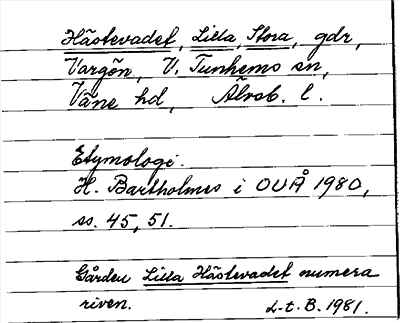 Hästevadet, Lilla, Stora, gdr,
Vargön, V. Tunhems sn,
Väne hd, Älvsb. l.
Etymologi.
H. Bartholmes i OUÅ 1980,
ss. 45, 51.
Gården Lilla Hästevadet numera
riven. L-t. B. 1981.